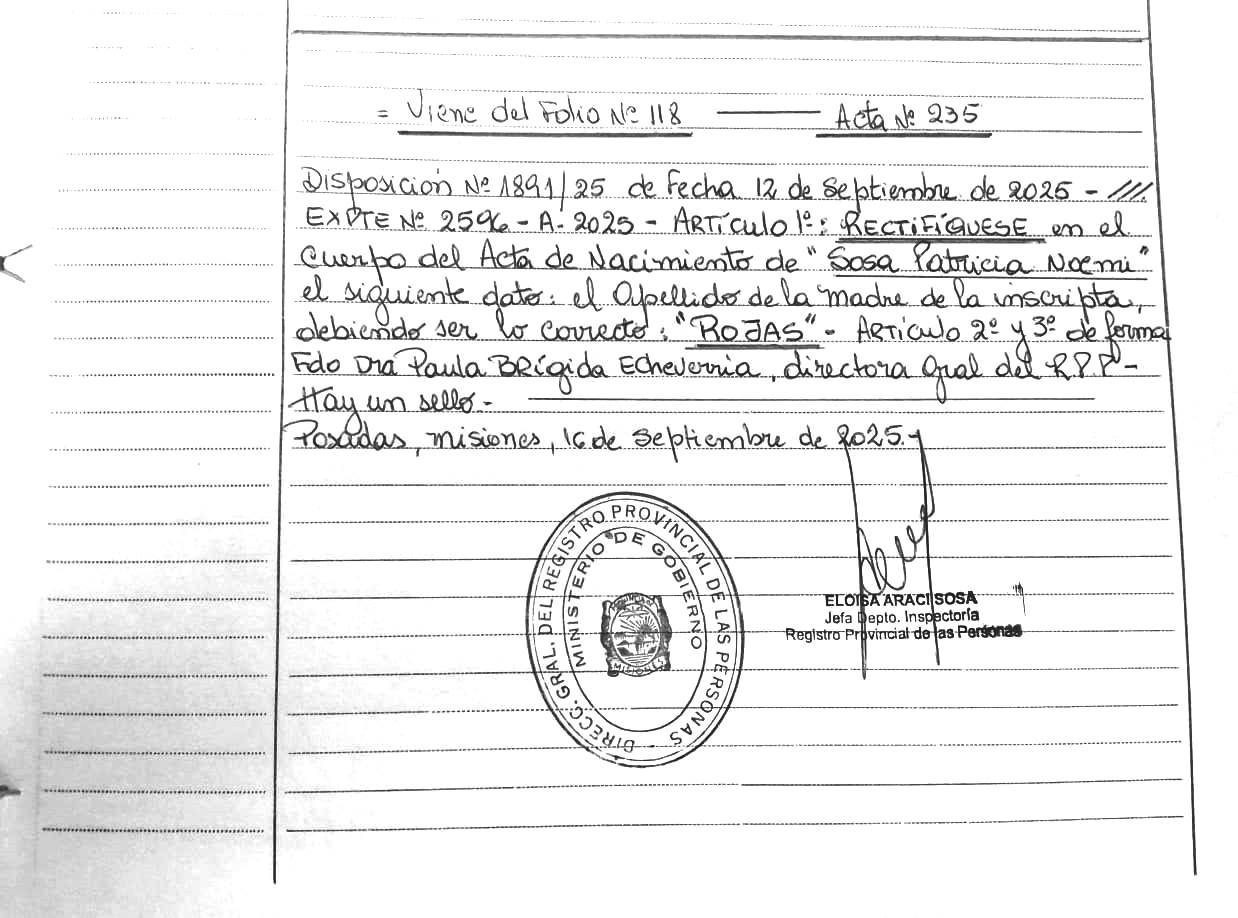 = Viene del Folio Nº 118 ——— Acta Nº 235
Disposición Nº 1891/25 de Fecha 12 de Septiembre de 2025 - ////.
EXPTE Nº 2596 - A - 2025 - ARTÍCULO 1º: RECTIFÍQUESE en el
Cuerpo del Acta de Nacimiento de "Sosa Patricia Noemi"
el siguiente dato: el Apellido de la madre de la inscripta,
debiendo ser lo correcto: "ROJAS" - Artículo 2º y 3º de forma
Fdo Dra Paula BRígida Echeverria, directora Gral del R.P.P -
Hay un sello -
Posadas, misiones, 16 de Septiembre de 2025.-
DIRECC. GRAL. DEL REGISTRO PROVINCIAL DE LAS PERSONAS -
MINISTERIO DE GOBIERNO
MISIONES
ELOISA ARACI SOSA
Jefa Depto. Inspectoría
Registro Provincial de las Personas